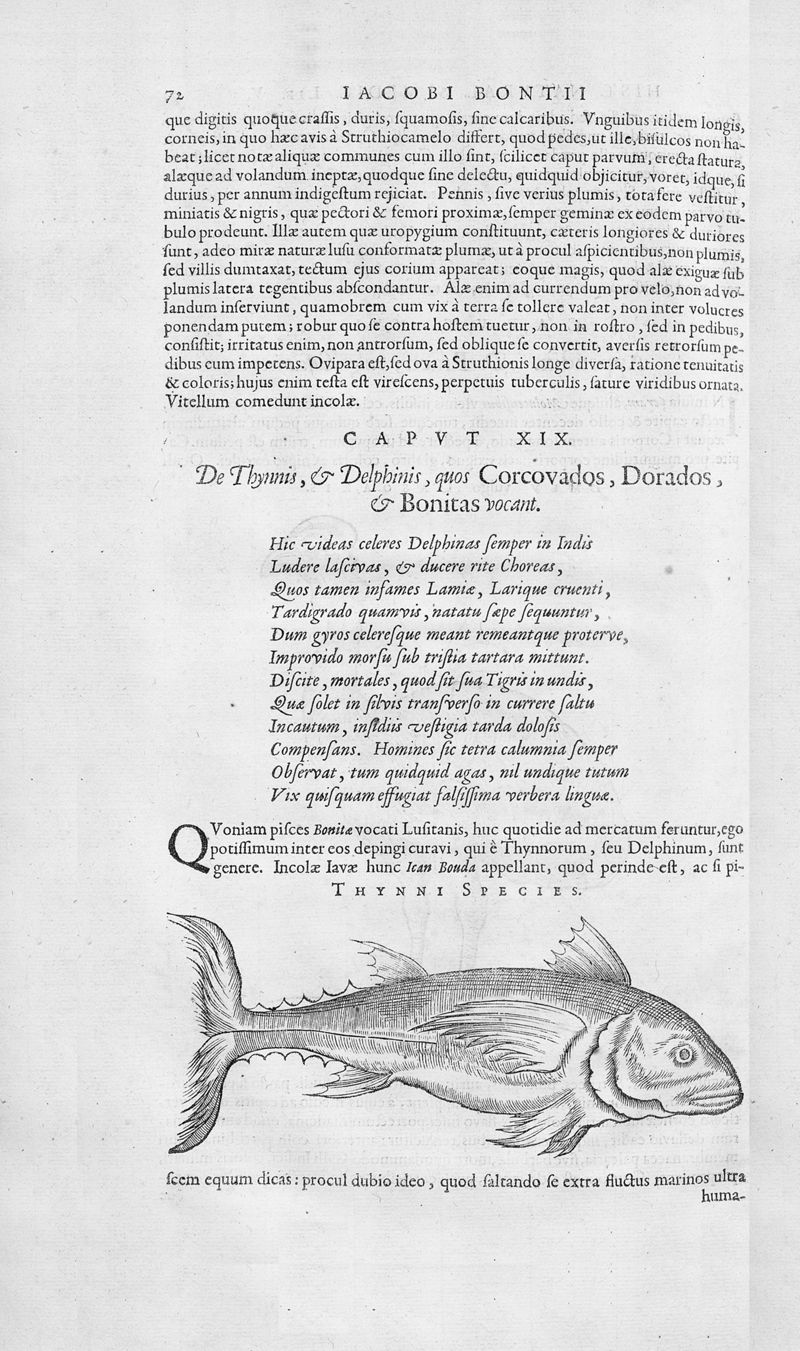 72 IACOBI BONTII
que digitis quoque craſſis, duris, ſquamoſis, ſine calcaribus. Vnguibus itidem longis,
corneis, in quo hæc avis à Struthiocamelo differt, quod pedes, ut ille, biſulcos non ha-
beat; licet notæ aliquæ communes cum illo ſint, ſcilicet caput parvum, erecta ſtatura,
alæque ad volandum ineptæ, quodque ſine delectu, quidquid objicitur, voret, idque, ſi
durius, per annum indigeſtum rejiciat. Pennis, ſive verius plumis, tota fere veſtitur,
miniatis & nigris, quæ pectori & femori proximæ, ſemper geminæ ex eodem parvo tu-
bulo prodeunt. Illæ autem quæ uropygium conſtituunt, cæteris longiores & duriores
ſunt, adeo miræ naturæ luſu conformatæ plumæ, ut à procul aſpicientibus, non plumis,
ſed villis dumtaxat, tectum ejus corium appareat; eoque magis, quod alæ exiguæ ſub
plumis latera tegentibus abſcondantur. Alæ enim ad currendum pro velo, non ad vo-
landum inſerviunt, quamobrem cum vix à terra ſe tollere valeat, non inter volucres
ponendam putem; robur quo ſe contra hoſtem tuetur, non in roſtro, ſed in pedibus,
conſiſtit; irritatus enim, non antrorſum, ſed oblique ſe convertit, averſis retrorſum pe-
dibus cum impetens. Ovipara eſt, ſed ova à Struthionis longe diverſa, ratione tenuitatis
& coloris; hujus enim teſta eſt vireſcens, perpetuis tuberculis, ſature viridibus ornata.
Vitellum comedunt incolæ.
CAPVT XIX.
De Thynnis, & Delphinis, quos Corcovados, Dorados,
& Bonitas vocant.
Hic videas celeres Delphinas ſemper in Indis
Ludere laſcivas, & ducere rite Choreas,
Quos tamen infames Lamiæ, Larique cruenti,
Tardigrado quamvis, natatu ſæpe ſequuntur,
Dum gyros celereſque meant remeantque proterve,
Improvido morſu ſub triſtia tartara mittunt.
Diſcite, mortales, quod ſit ſua Tigris in undis,
Quæ ſolet in ſilvis tranſverſo in currere ſaltu
Incautum, inſidiis veſtigia tarda doloſis
Compenſans. Homines ſic tetra calumnia ſemper
Obſervat, tum quidquid agas, nil undique tutum
Vix quiſquam effugiat falſiſſima verbera linguæ.
QVoniam piſces Bonitæ vocati Luſitanis, huc quotidie ad mercatum feruntur, ego
potiſſimum inter eos depingi curavi, qui è Thynnorum, ſeu Delphinum, ſunt
genere. Incolæ Iavæ hunc Ican Bouda appellant, quod perinde eſt, ac ſi pi-
THYNNI SPECIES.
ſcem equum dicas: procul dubio ideo, quod ſaltando ſe extra fluctus marinos ultra
huma-